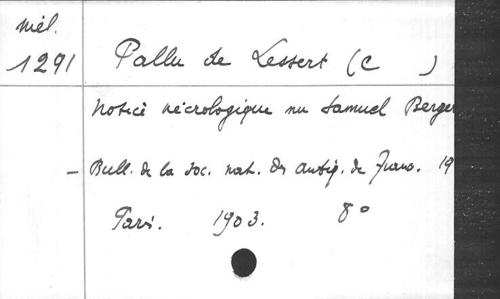 Mél.
1291 Pallu de Lessert (C )
Notice nécrologique su Samuel Berger
— Bull. de la Soc. nat. des antiq. de Franc. 19
Paris. 1903. 8°